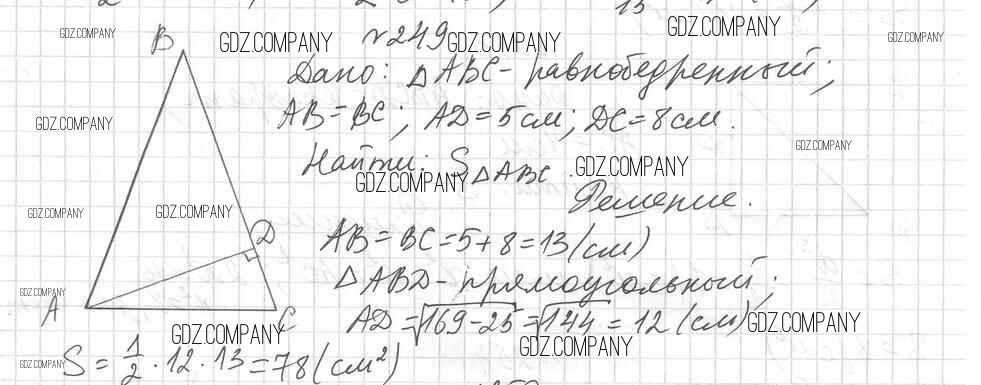 GDZ.COMPANY
GDZ.COMPANY
№249
GDZ.COMPANY
GDZ.COMPANY
GDZ.COMPANY
B
Дано: △ABC - равнобедренный;
AB = BC; AD = 5 см; DC = 8 см.
GDZ.COMPANY
GDZ.COMPANY
Найти: S△ABC.
GDZ.COMPANY
GDZ.COMPANY
Решение.
GDZ.COMPANY
GDZ.COMPANY
D
AB = BC = 5 + 8 = 13 (см)
△ABD - прямоугольный;
GDZ.COMPANY
A
C
AD = √169-25 = √144 = 12 (см)
GDZ.COMPANY
GDZ.COMPANY
GDZ.COMPANY
GDZ.COMPANY
S = 1/2 · 12 · 13 = 78 (см²)